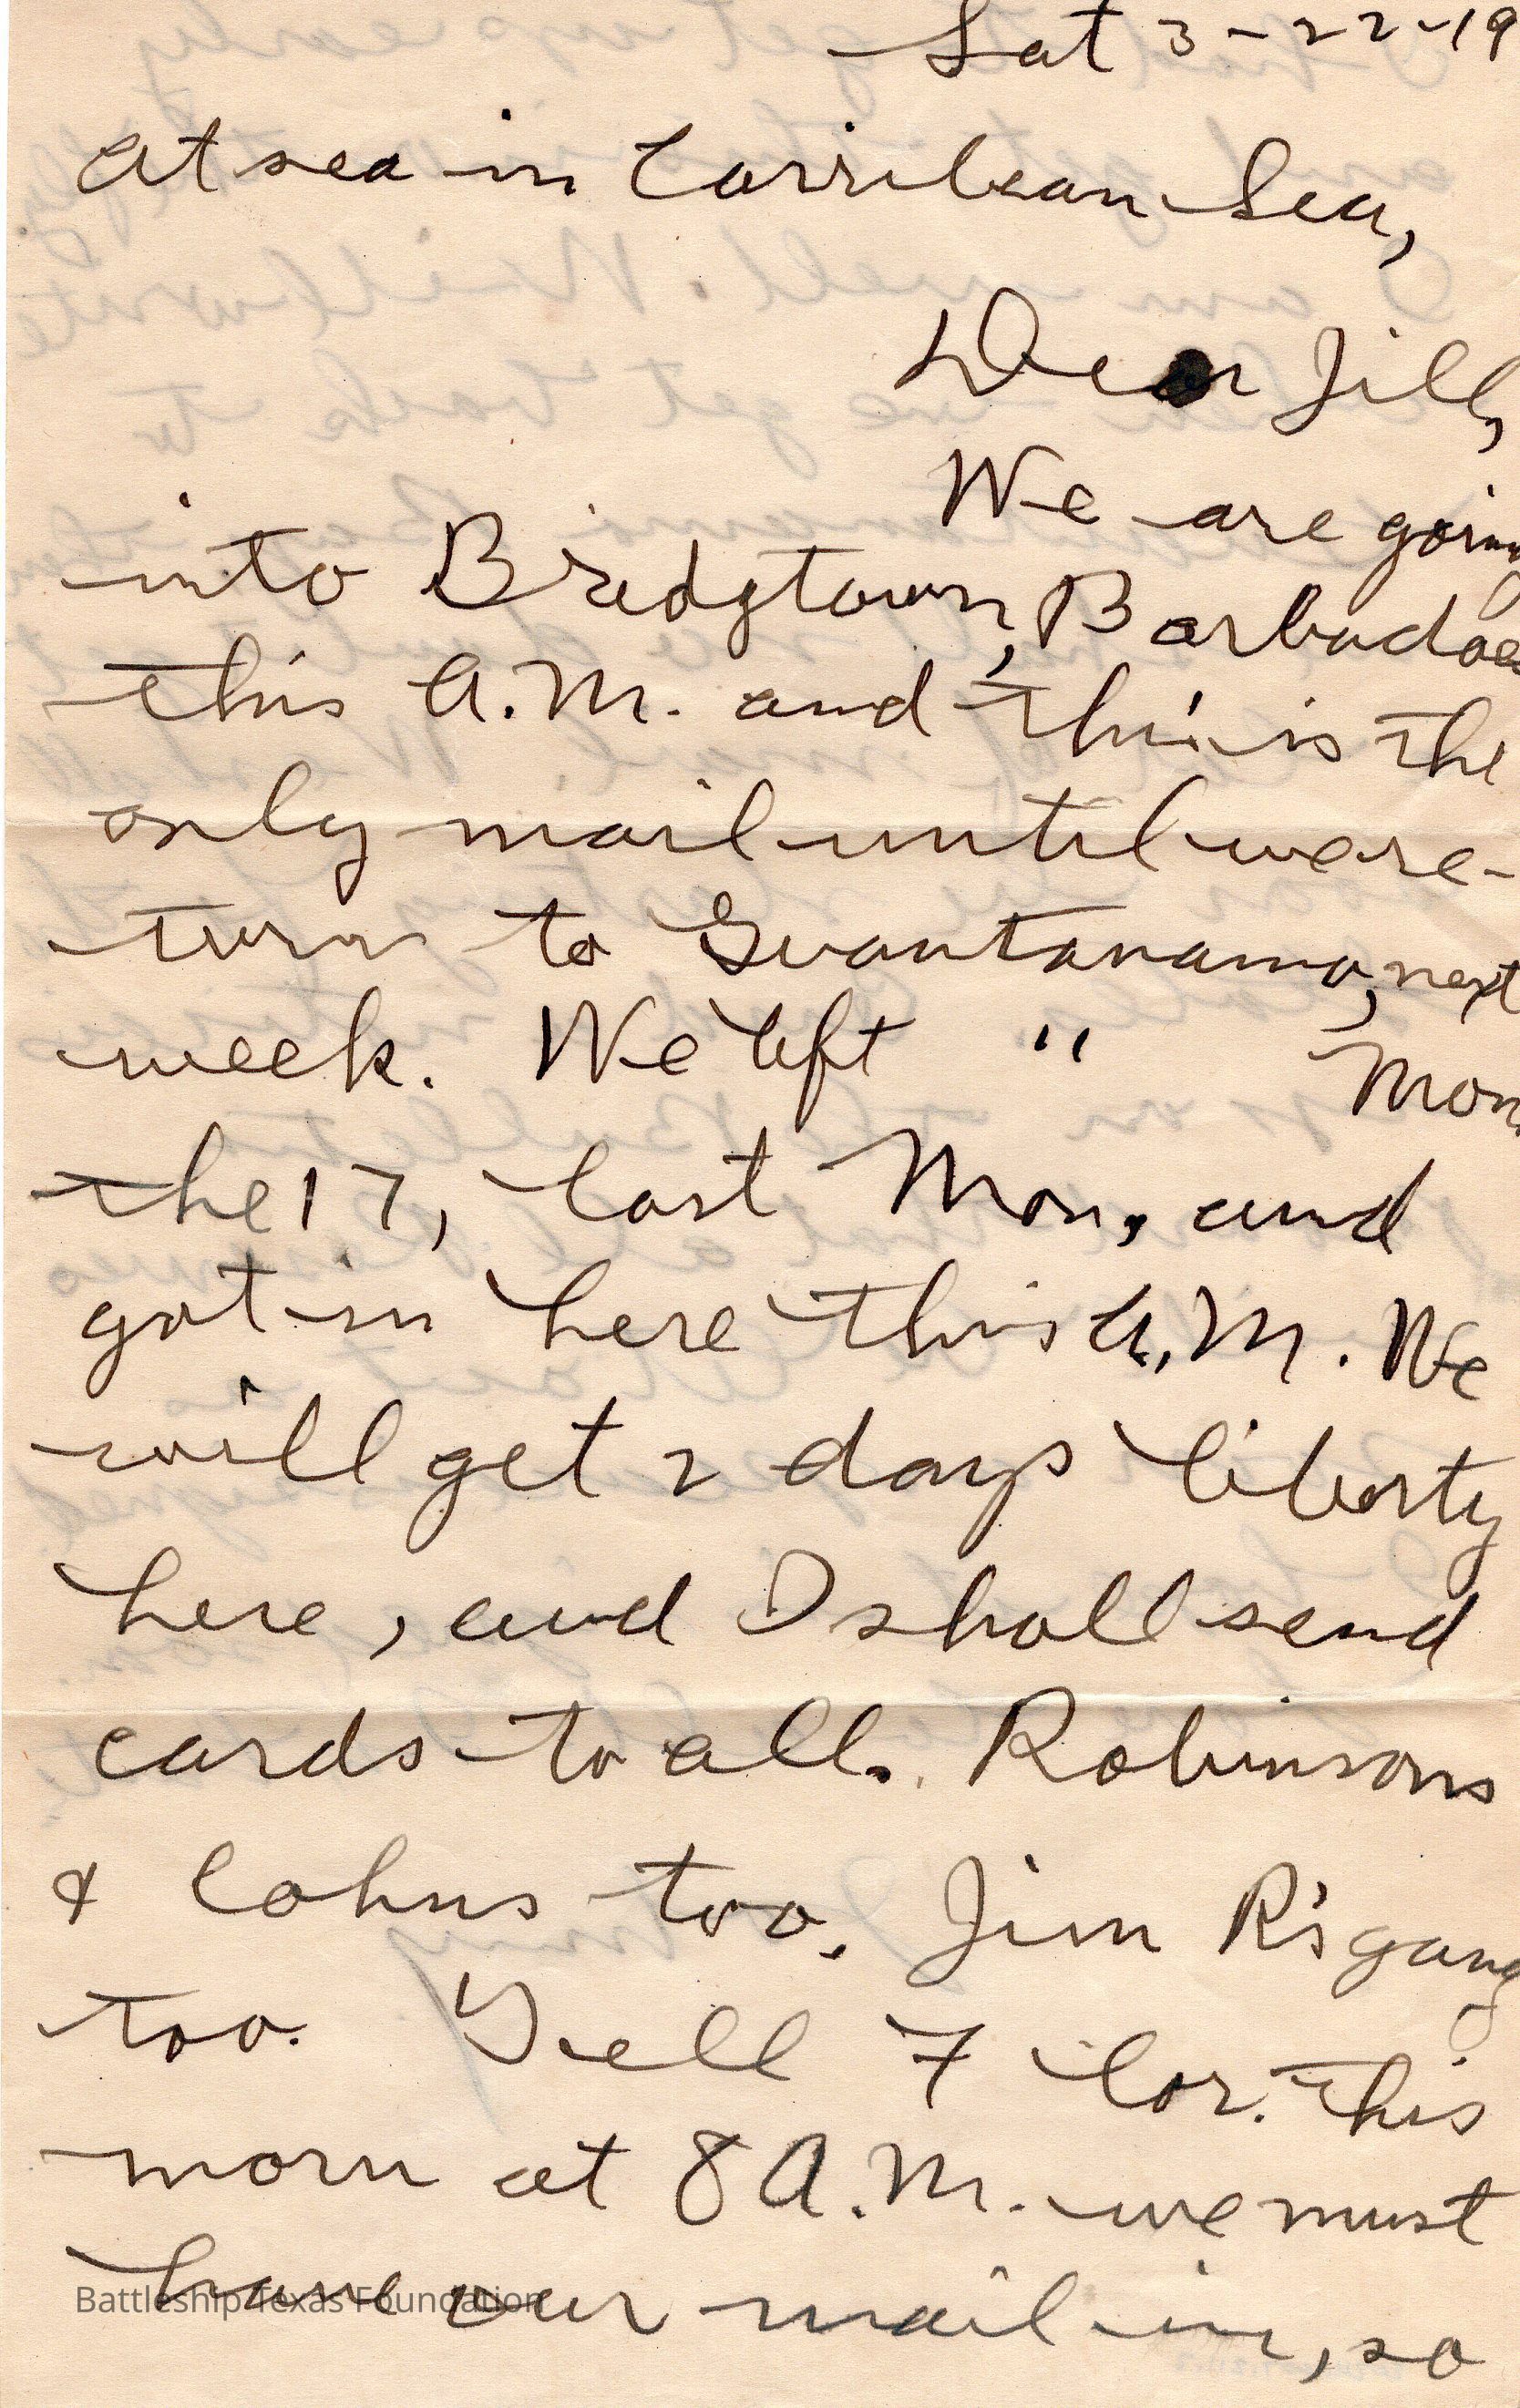 Sat 3-22-19
At sea in Carribean Sea,
Dear Jill,
We are going
into Bridgtown, Barbadoes
this A.M. and this is the
only mail until we re-
turn to Guantanamo, next
week. We left " Mon.
the 17, last Mon., and
got in here this A.M. We
will get 2 days liberty
here, and I shall send
cards to all. Robinsons
& Cohns too. Jim R's gang
too. Tell F Cor. this
morn at 8 A.M. we must
have our mail in, so
Battleship Texas Foundation